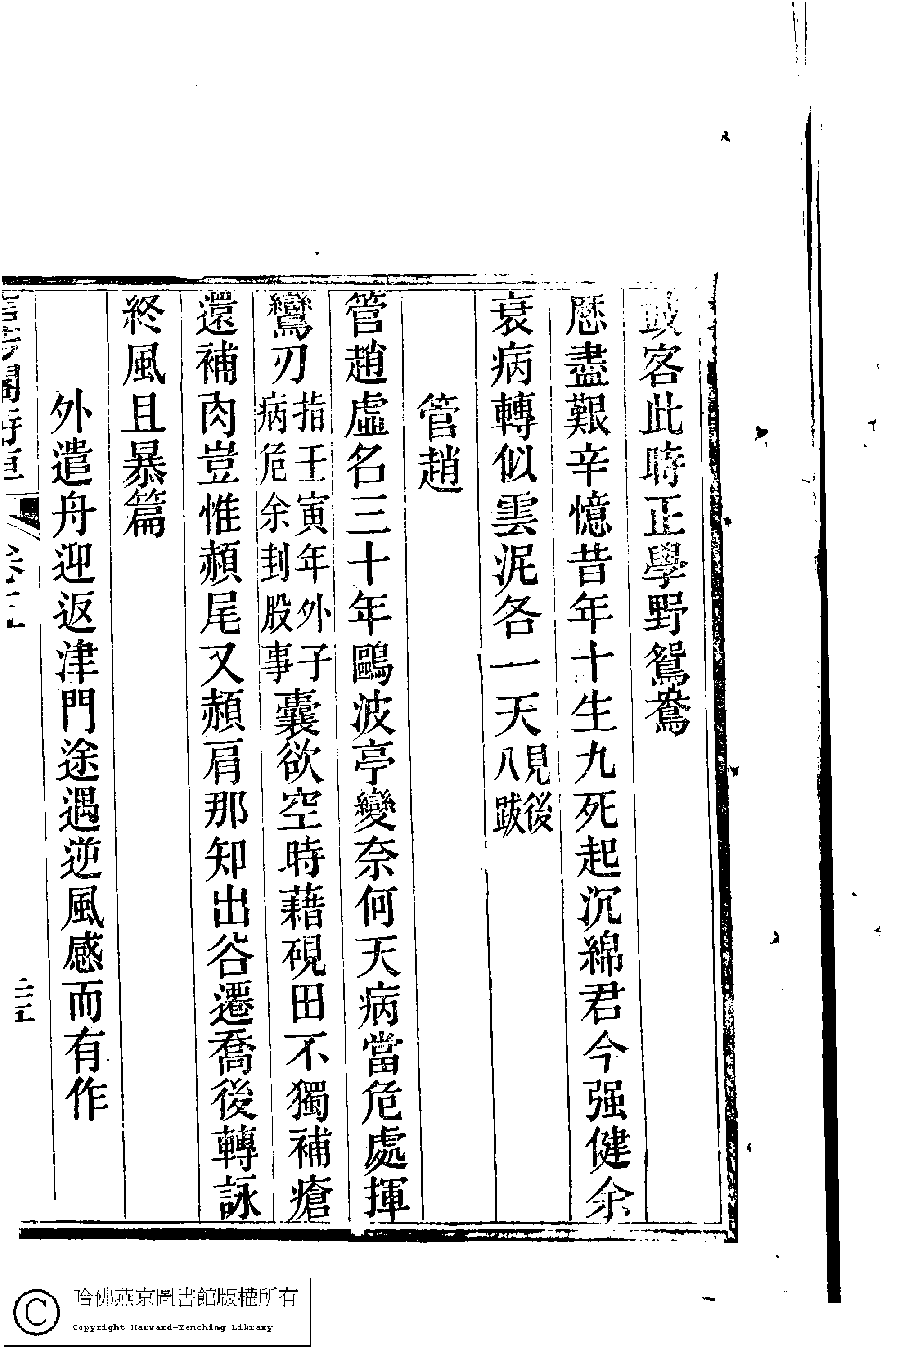 客此時正學野鴛鴦
歷盡艱辛憶昔年十生九死起沉綿君今强健余
衰病轉似雲泥各一天見後八跋
管趙
管趙虛名三十年鷗波亭變奈何天病當危處揮
鸞刃指壬寅年外子病危余刲股事囊欲空時藉硯田不獨補瘡
還補肉豈惟頳尾又頳肩那知出谷遷喬後轉詠
終風且暴篇
外遣舟迎返津門途遇逆風感而有作
卷三
哈佛燕京圖書館版權所有
Copyright Harvard-Yenching Library